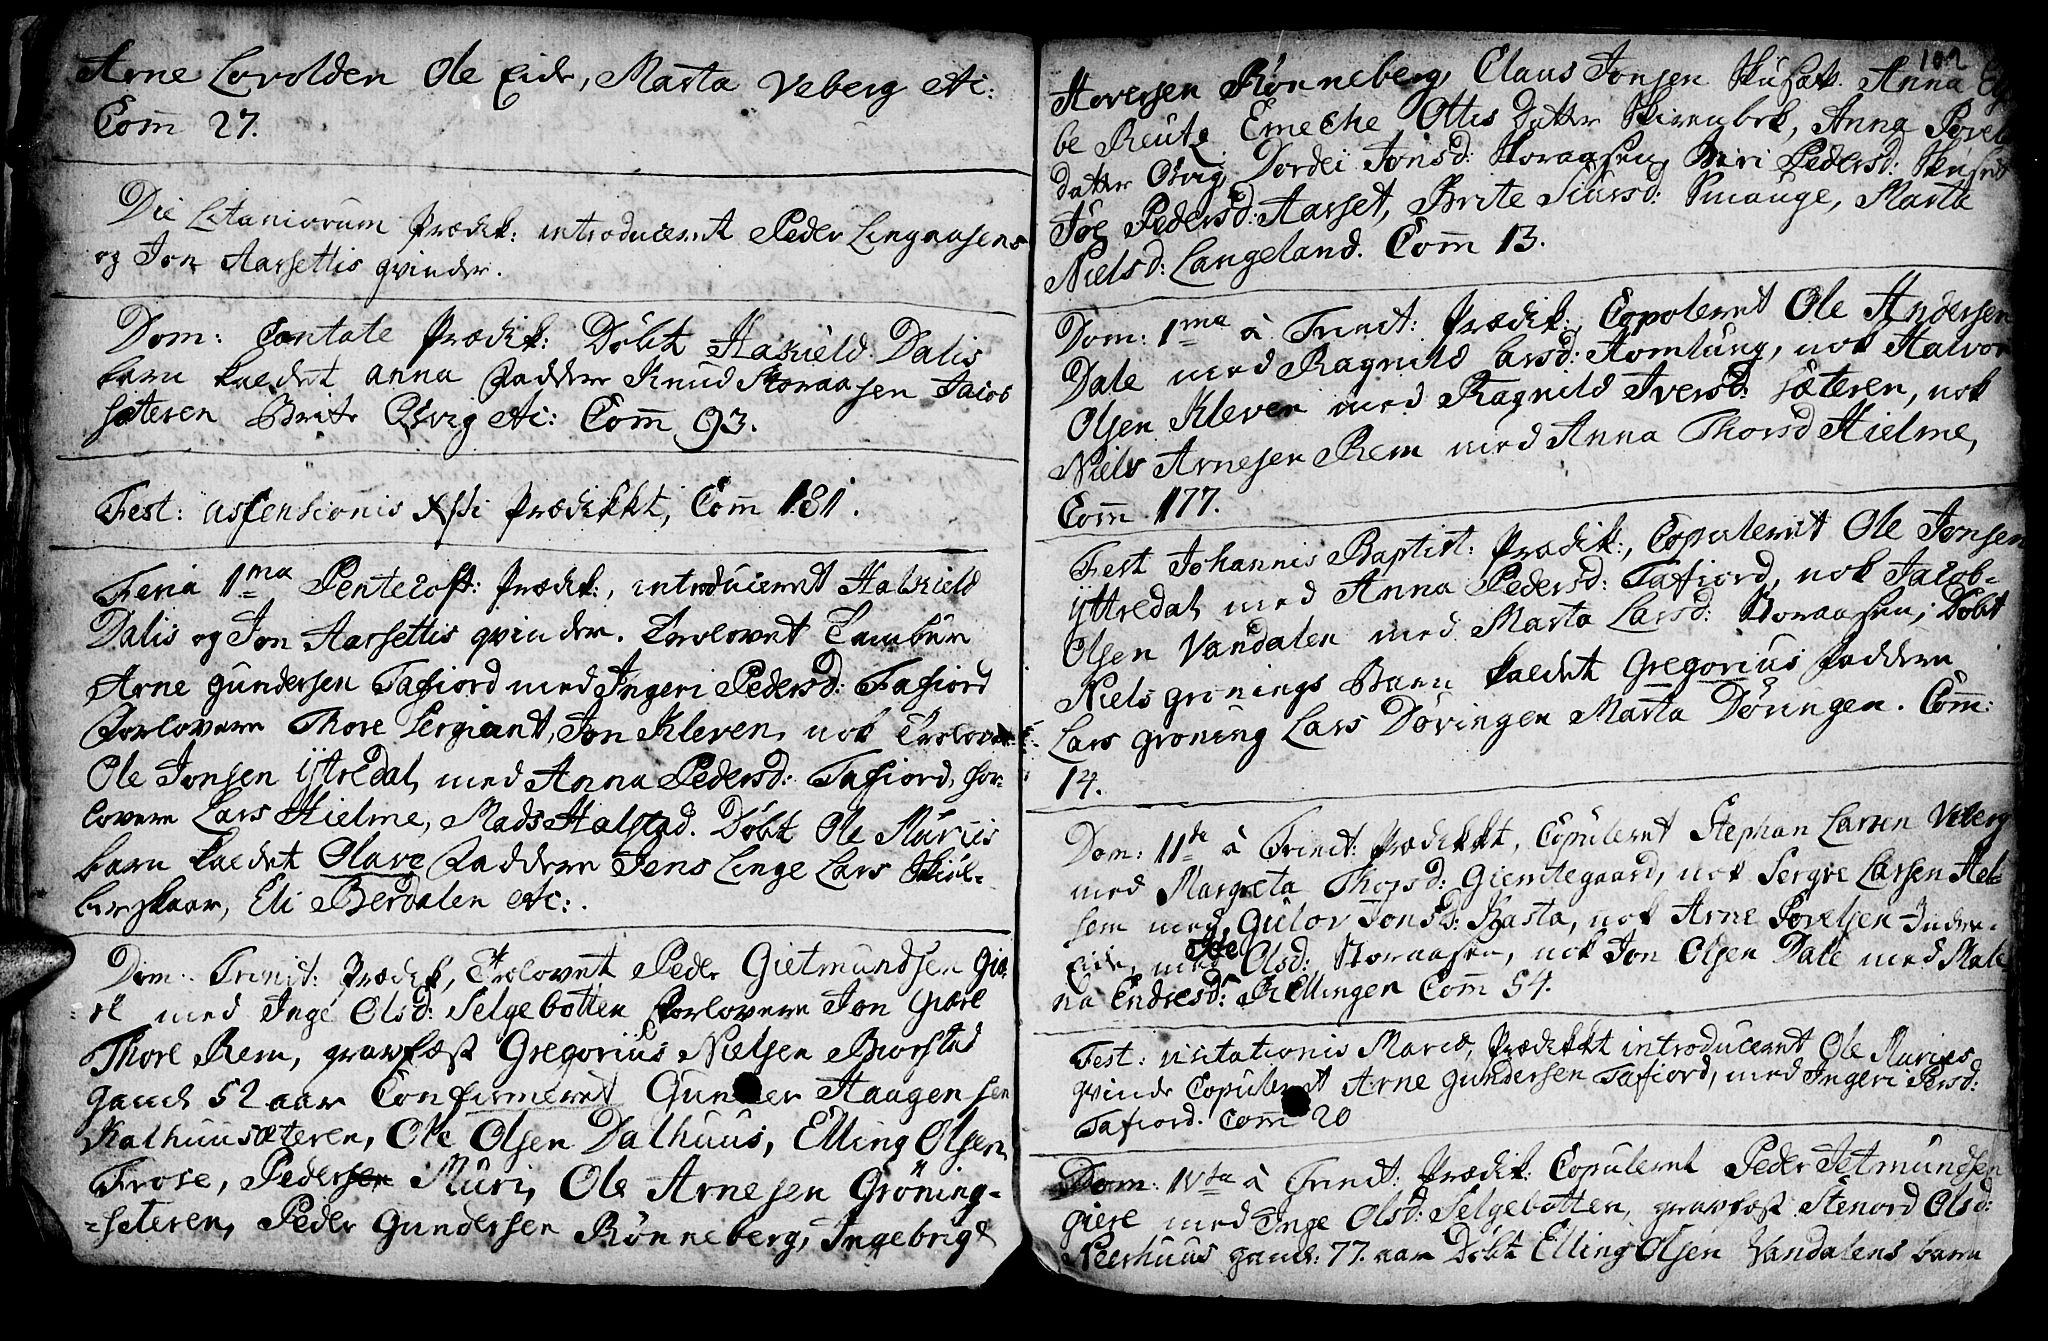 Arne Lovolden Ole Eide, Marta Veberg etc:
Com̄ 27.
Die Litaniorum Prædik: introduceret Peder Lingaasens
og Jon Aarsettis qvinder.
Dom: Cantate Prædik: Döbt Hakield Dalis
barn kaldet Anna Faddere Knud Storaasen Jacob
sæteren Brite Ovig etc: Com̄ 93.
Fest: ascensionis Xsti Prædikkt, Com̄ 181.
Feria 1ma Pentecost: Prædik:, introduceret Hakield
Dalis og Jon Aarsettis qvinder. Trolovet Tambur
Arne Gundersen Tafiord med Ingeri Pedersd: Tafiord
Forlovere Thore Sergiant, Jon Kleven, nok Trolovet
Ole Jonsen Yttredal med Anna Pedersd: Tafiord, for-
lovere Lars Hielme, Mads Halstad. Döbt Ole Muriis
barn kaldet Olave Faddere Jens Linge Lars
skaar, Eli Berdalen etc:.
Dom: Trinit: Prædik, Trolovet Peder Gietmundsen Giæ,
=re med Inge Olsd: Selgebotten Forlovere Jon Giære
Thore Rem, gravfæst Gregorius Nielsen Biorstad
gaml 52 aar Confirmeret Gunder Haagensen
Kalhuussæteren, Ole Olsen Dalhuus, Elling Olsen
Frose, Peder Muri, Ole Arnesen Gröning-
=sæteren, Peder Gundersen Rönneberg, Ingebrigt
102
Storersen Rönneberg, Claus Jonsen Anna
be Reute Emeche Ottis datter Anna Povels
datter Ovig, Dordei Jonsd: Storaasen, Siri Pedersd:
Pedersd: Aarset, Brite Siursd: Smauge, Marta
Nielsd: Langeland. Com̄ 13.
Dom: 1ma à Trinit: Prædik:, Copuleret Ole Andersen
Dale med Ragnild Larsd: Homlung, nok Halvor
Olsen Kleven med Ragnild Iversd: sæteren, nok
Niels Arnesen Rem med Anna Thorsd Hielme,
Com̄ 177.
Fest Johannis Baptist: Prædik:, Copuleret Ole Jonsen
Yttredal med Anna Pedersd: Tafiord, nok Jacob
Olsen Vandalen med Marta Larsd: Storaasen, Döbt
Niels Grönings Barn kaldet Gregorius Faddere
Lars Gröning Lars Dövingen Marta Döringen. Com̄:
14.
Dom: 11de à Trinit: Prædikkt, Copuleret Stephan Larsen Veberg
med Margreta Thorsd: Giemtegaard, nok Sergve Larsen Hel-
sem med Gulov Jonsd: Kasta, nok Arne Povelsen Indre-
Eide, med Olsd: Storaasen, nok Jon Olsen Dale med Male
na Endresd: Rellingen Com̄ 54.
Fest: visitationis Mariæ, Prædikkt introduceret Ole Muriis
qvinde Copuleret Arne Gundersen Tafiord, med Ingeri Persd:
Tafiord. Com̄ 20
Dom: IVta à Trinit: Prædik: Copuleret Peder Jetmundsen
giere med Inge Olsd: Selgebotten, gravfæst Stenord Olsd:
Neerhuus gaml: 77. aar Döbt Elling Olsen Vandalens barn